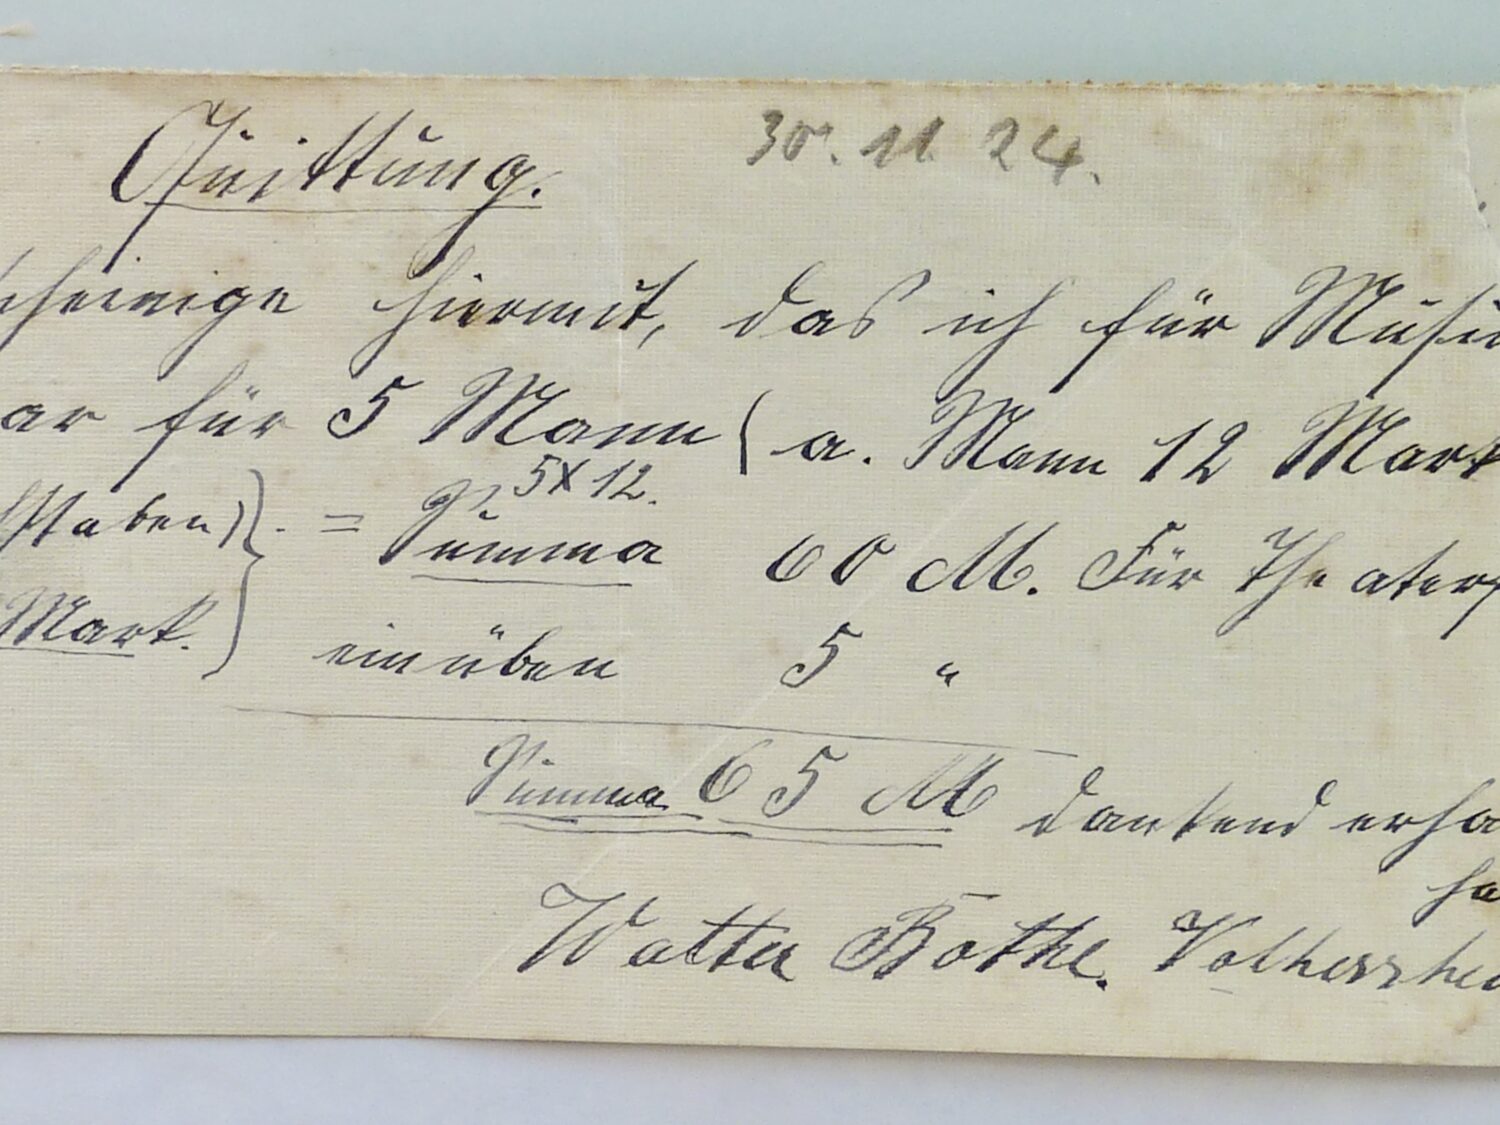 Quittung.
30. 11. 24.
scheinige hiermit, das ich für Musi
ar für 5 Mann ( a. Mann 12 Mark
5 X 12.
staben) } = Summa 60 M. Für Theaters
Mark. einüben 5 "
Summa 65 M dankend erha
ha
Walter Bothe.